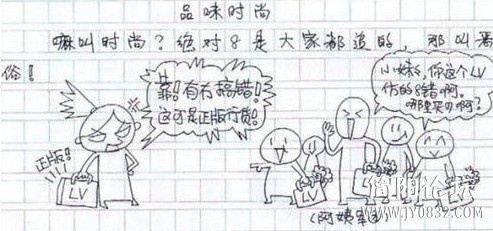 品味时尚
嘛叫时尚？绝对8是大家都追的 那叫恶
俗！
靠!有冇搞错!
这可是正版行货!
正版!
LV
小妹,你这个LV
仿的8错啊。
哪里买
啊?
LV
LV
(阿姨军团)
简阳论坛
WWW.JY0832.COM